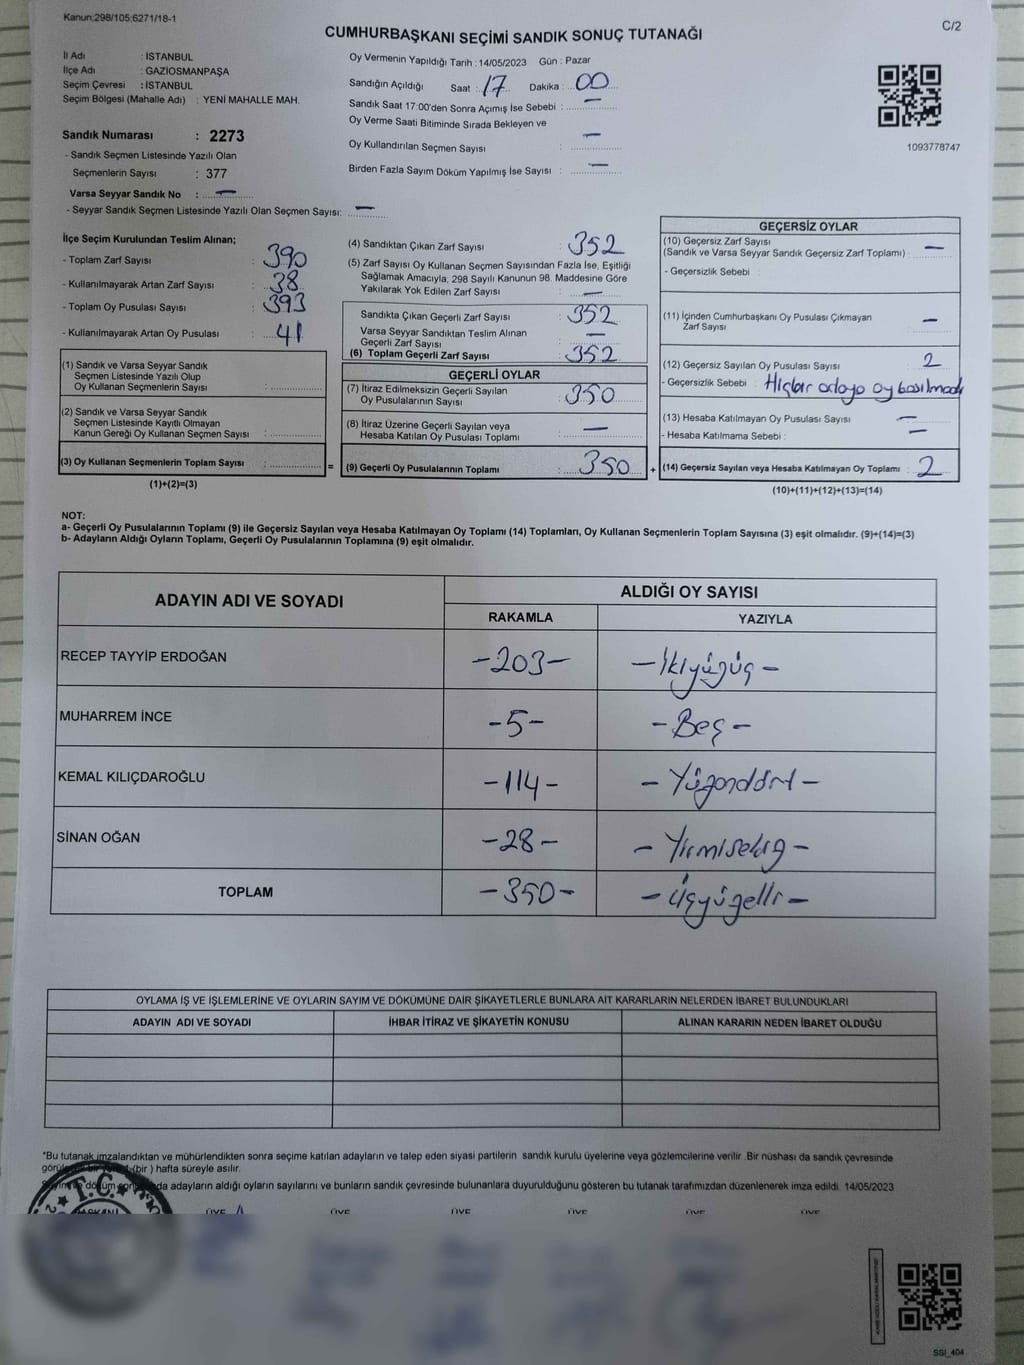 Kanun:298/105;6271/18-1
C/2
CUMHURBAŞKANI SEÇİMİ SANDIK SONUÇ TUTANAĞI
İl Adı : İSTANBUL
İlçe Adı : GAZİOSMANPAŞA
Seçim Çevresi : İSTANBUL
Seçim Bölgesi (Mahalle Adı) : YENİ MAHALLE MAH.
Sandık Numarası : 2273
- Sandık Seçmen Listesinde Yazılı Olan
Seçmenlerin Sayısı : 377
Varsa Seyyar Sandık No : —
- Seyyar Sandık Seçmen Listesinde Yazılı Olan Seçmen Sayısı: —
Oy Vermenin Yapıldığı Tarih : 14/05/2023 Gün : Pazar
Sandığın Açıldığı Saat : 17 Dakika : 00
Sandık Saat 17:00'den Sonra Açımış İse Sebebi : —
Oy Verme Saati Bitiminde Sırada Bekleyen ve
Oy Kullandırılan Seçmen Sayısı : —
Birden Fazla Sayım Döküm Yapılmış İse Sayısı : —
1093778747
İlçe Seçim Kurulundan Teslim Alınan;
- Toplam Zarf Sayısı : 390
- Kullanılmayarak Artan Zarf Sayısı : 38
- Toplam Oy Pusulası Sayısı : 393
- Kullanılmayarak Artan Oy Pusulası : 41
(1) Sandık ve Varsa Seyyar Sandık
Seçmen Listesinde Yazılı Olup
Oy Kullanan Seçmenlerin Sayısı :
(2) Sandık ve Varsa Seyyar Sandık
Seçmen Listesinde Kayıtlı Olmayan
Kanun Gereği Oy Kullanan Seçmen Sayısı :
(3) Oy Kullanan Seçmenlerin Toplam Sayısı : =
(1)+(2)=(3)
(4) Sandıktan Çıkan Zarf Sayısı : 352
(5) Zarf Sayısı Oy Kullanan Seçmen Sayısından Fazla İse, Eşitliği
Sağlamak Amacıyla, 298 Sayılı Kanunun 98. Maddesine Göre
Yakılarak Yok Edilen Zarf Sayısı : —
Sandıkta Çıkan Geçerli Zarf Sayısı : 352
Varsa Seyyar Sandıktan Teslim Alınan
Geçerli Zarf Sayısı : —
(6) Toplam Geçerli Zarf Sayısı : 352
GEÇERLİ OYLAR
(7) İtiraz Edilmeksizin Geçerli Sayılan
Oy Pusulalarının Sayısı : 350
(8) İtiraz Üzerine Geçerli Sayılan veya
Hesaba Katılan Oy Pusulası Toplamı : —
(9) Geçerli Oy Pusulalarının Toplamı : 350 +
GEÇERSİZ OYLAR
(10) Geçersiz Zarf Sayısı
(Sandık ve Varsa Seyyar Sandık Geçersiz Zarf Toplamı) : —
- Geçersizlik Sebebi :
(11) İçinden Cumhurbaşkanı Oy Pusulası Çıkmayan
Zarf Sayısı : —
(12) Geçersiz Sayılan Oy Pusulası Sayısı : 2
- Geçersizlik Sebebi : Hiçbir adaya oy basılmadı
(13) Hesaba Katılmayan Oy Pusulası Sayısı : —
- Hesaba Katılmama Sebebi : —
(14) Geçersiz Sayılan veya Hesaba Katılmayan Oy Toplamı : 2
(10)+(11)+(12)+(13)=(14)
NOT:
a- Geçerli Oy Pusulalarının Toplamı (9) ile Geçersiz Sayılan veya Hesaba Katılmayan Oy Toplamı (14) Toplamları, Oy Kullanan Seçmenlerin Toplam Sayısına (3) eşit olmalıdır. (9)+(14)=(3)
b- Adayların Aldığı Oyların Toplamı, Geçerli Oy Pusulalarının Toplamına (9) eşit olmalıdır.
ADAYIN ADI VE SOYADI
ALDIĞI OY SAYISI
RAKAMLA YAZIYLA
RECEP TAYYİP ERDOĞAN -203- -İkiyüzüç-
MUHARREM İNCE -5- -Beş-
KEMAL KILIÇDAROĞLU -114- -Yüzondört-
SİNAN OĞAN -28- -Yirmisekiz-
TOPLAM -350- -Üçyüzelli-
OYLAMA İŞ VE İŞLEMLERİNE VE OYLARIN SAYIM VE DÖKÜMÜNE DAİR ŞİKAYETLERLE BUNLARA AİT KARARLARIN NELERDEN İBARET BULUNDUKLARI
ADAYIN ADI VE SOYADI İHBAR İTİRAZ VE ŞİKAYETİN KONUSU ALINAN KARARIN NEDEN İBARET OLDUĞU
*Bu tutanak imzalandıktan ve mühürlendikten sonra seçime katılan adayların ve talep eden siyasi partilerin sandık kurulu üyelerine veya gözlemcilerine verilir .Bir nüshası da sandık çevresinde
(bir ) hafta süreyle asılır.
adayların aldığı oyların sayılarını ve bunların sandık çevresinde bulunanlara duyurulduğunu gösteren bu tutanak tarafımızdan düzenlenerek imza edildi. 14/05/2023
T.C.
ÜYE ÜYE ÜYE ÜYE ÜYE ÜYE
SSI_404